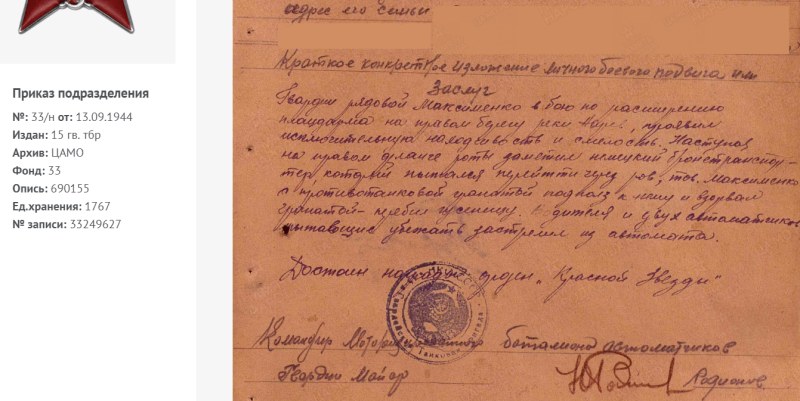 Приказ подразделения
№: 33/н от: 13.09.1944
Издан: 15 гв. тбр
Архив: ЦАМО
Фонд: 33
Опись: 690155
Ед.хранения: 1767
№ записи: 33249627
адрес его семьи
Краткое конкретное изложение личного боевого подвига или
заслуг
Гвардии рядовой Максименко в бою по расширению
плацдарма на правом берегу реки Нарев, проявил
исключительную находчивость и смелость. Наступая
на правом фланге роты заметил немецкий бронетранспор-
тер, который пытался перейти через ров, тов. Максименко
с противотанковой гранатой подполз к нему и взорвал
гранатой - перебил гусеницу. Водителя и двух автоматчиков
пытающис убежать застрелил из автомата.
Достоин награды орден „Красной Звезды"
Командир Моториз батальона автоматчиков
Гвардии Майор Родионов